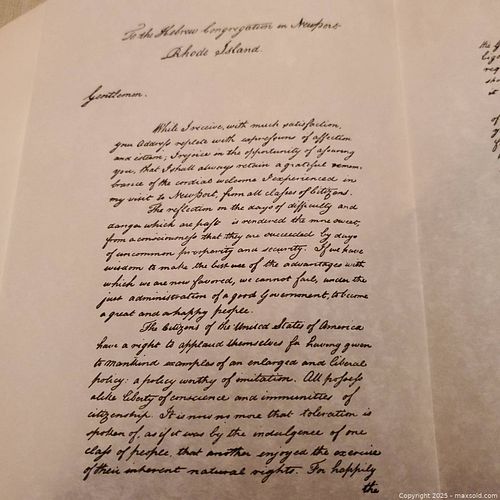 To the Hebrew Congregation in Newport
Rhode Island.
Gentlemen.
While I receive, with much satisfaction,
your Address replete with expressions of affection
and esteem; I rejoice in the opportunity of assuring
you, that I shall always retain a grateful remem-
brance of the cordial welcome I experienced in
my visit to Newport, from all classes of Citizens.
The reflection on the days of difficulty and
danger which are past is rendered the more sweet,
from a consciousness that they are succeeded by days
of uncommon prosperity and security. If we have
wisdom to make the best use of the advantages with
which we are now favored, we cannot fail, under the
just administration of a good Government, to become
a great and a happy people.
The Citizens of the United States of America
have a right to applaud themselves for having given
to Mankind examples of an enlarged and liberal
policy: a policy worthy of imitation. All possess
alike liberty of conscience and immunities of
citizenship. It is now no more that toleration is
spoken of, as if it was by the indulgence of one
class of people, that another enjoyed the exercise
of their inherent natural rights. For happily
the
Copyright 2025 - maxsold.com